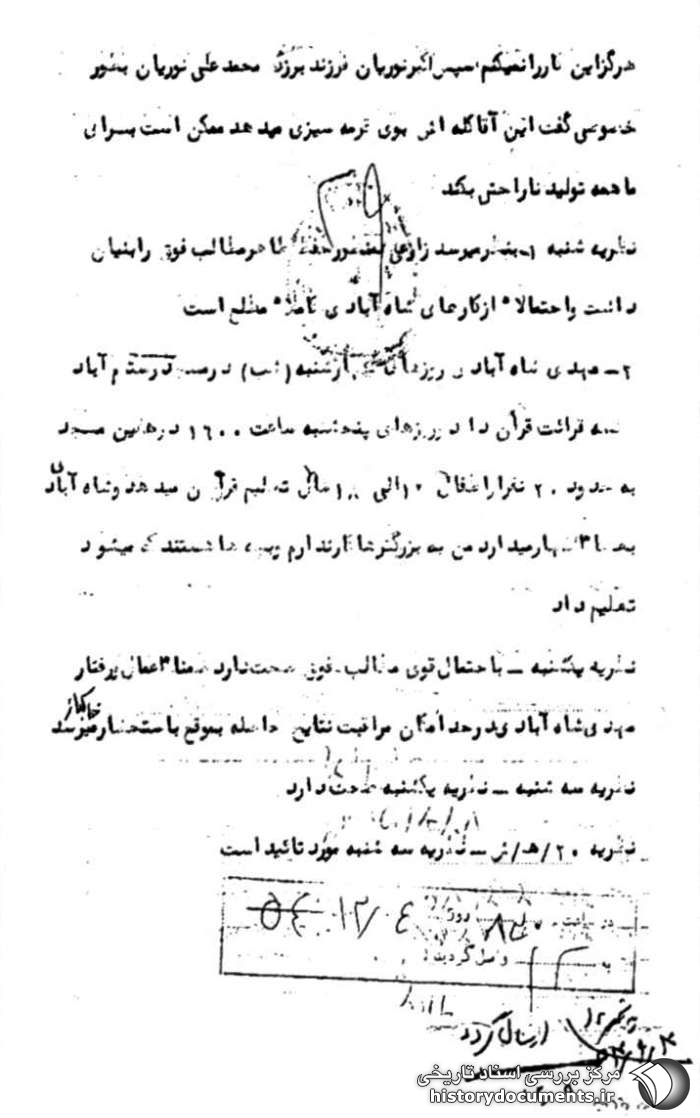 هرگز این کار را نمیکنم سپس اکبر نوریان فرزند بزرگ محمد علی نوریان بطور
خصوصی گفت این آقا کله اش بوی قرمه سبزی میدهد ممکن است برای
ما همه تولید ناراحتی بکند
نظریه شنبه ۱ـ بنظر میرسد زارعی بمنظور حفظ ظاهر مطالب فوق را بنیان
داشت و احتمالا" از کارهای شاه آبادی کاملا" مطلع است
۲ـ مهدی شاه آبادی روزهای شنبه (شب) در مسجد رستم آباد
قرائت قرآن دارد روزهای پنجشنبه ساعت ۱۶۰۰ در همین مسجد
به حدود ۲۰ نفر از اطفال ۱۰ الی سال تعلیم قرآن میدهد و شاه آبادی
اظهار میدارد من به بزرگترها کار ندارم بچه ها هستند که میشود
تعلیم داد
نظریه یکشنبه ـ باحتمال قوی مطالب فوق صحت دارد ضمنا" اعمال و رفتار
مهدی شاه آبادی در حد امکان مراقبت نتایج حاصله بموقع باستحضار میرسد
نظریه سه شنبه ـ نظریه یکشنبه صحت دارد
نظریه ۲۰/ه‍/ش ـ نظریه سه شنبه مورد تائید است
در ساعت روز ۵۴ ۱۲/۰۴
به واصل گردید
ارسال گردد
مرکز بررسی اسناد تاریخی
historydocuments.ir